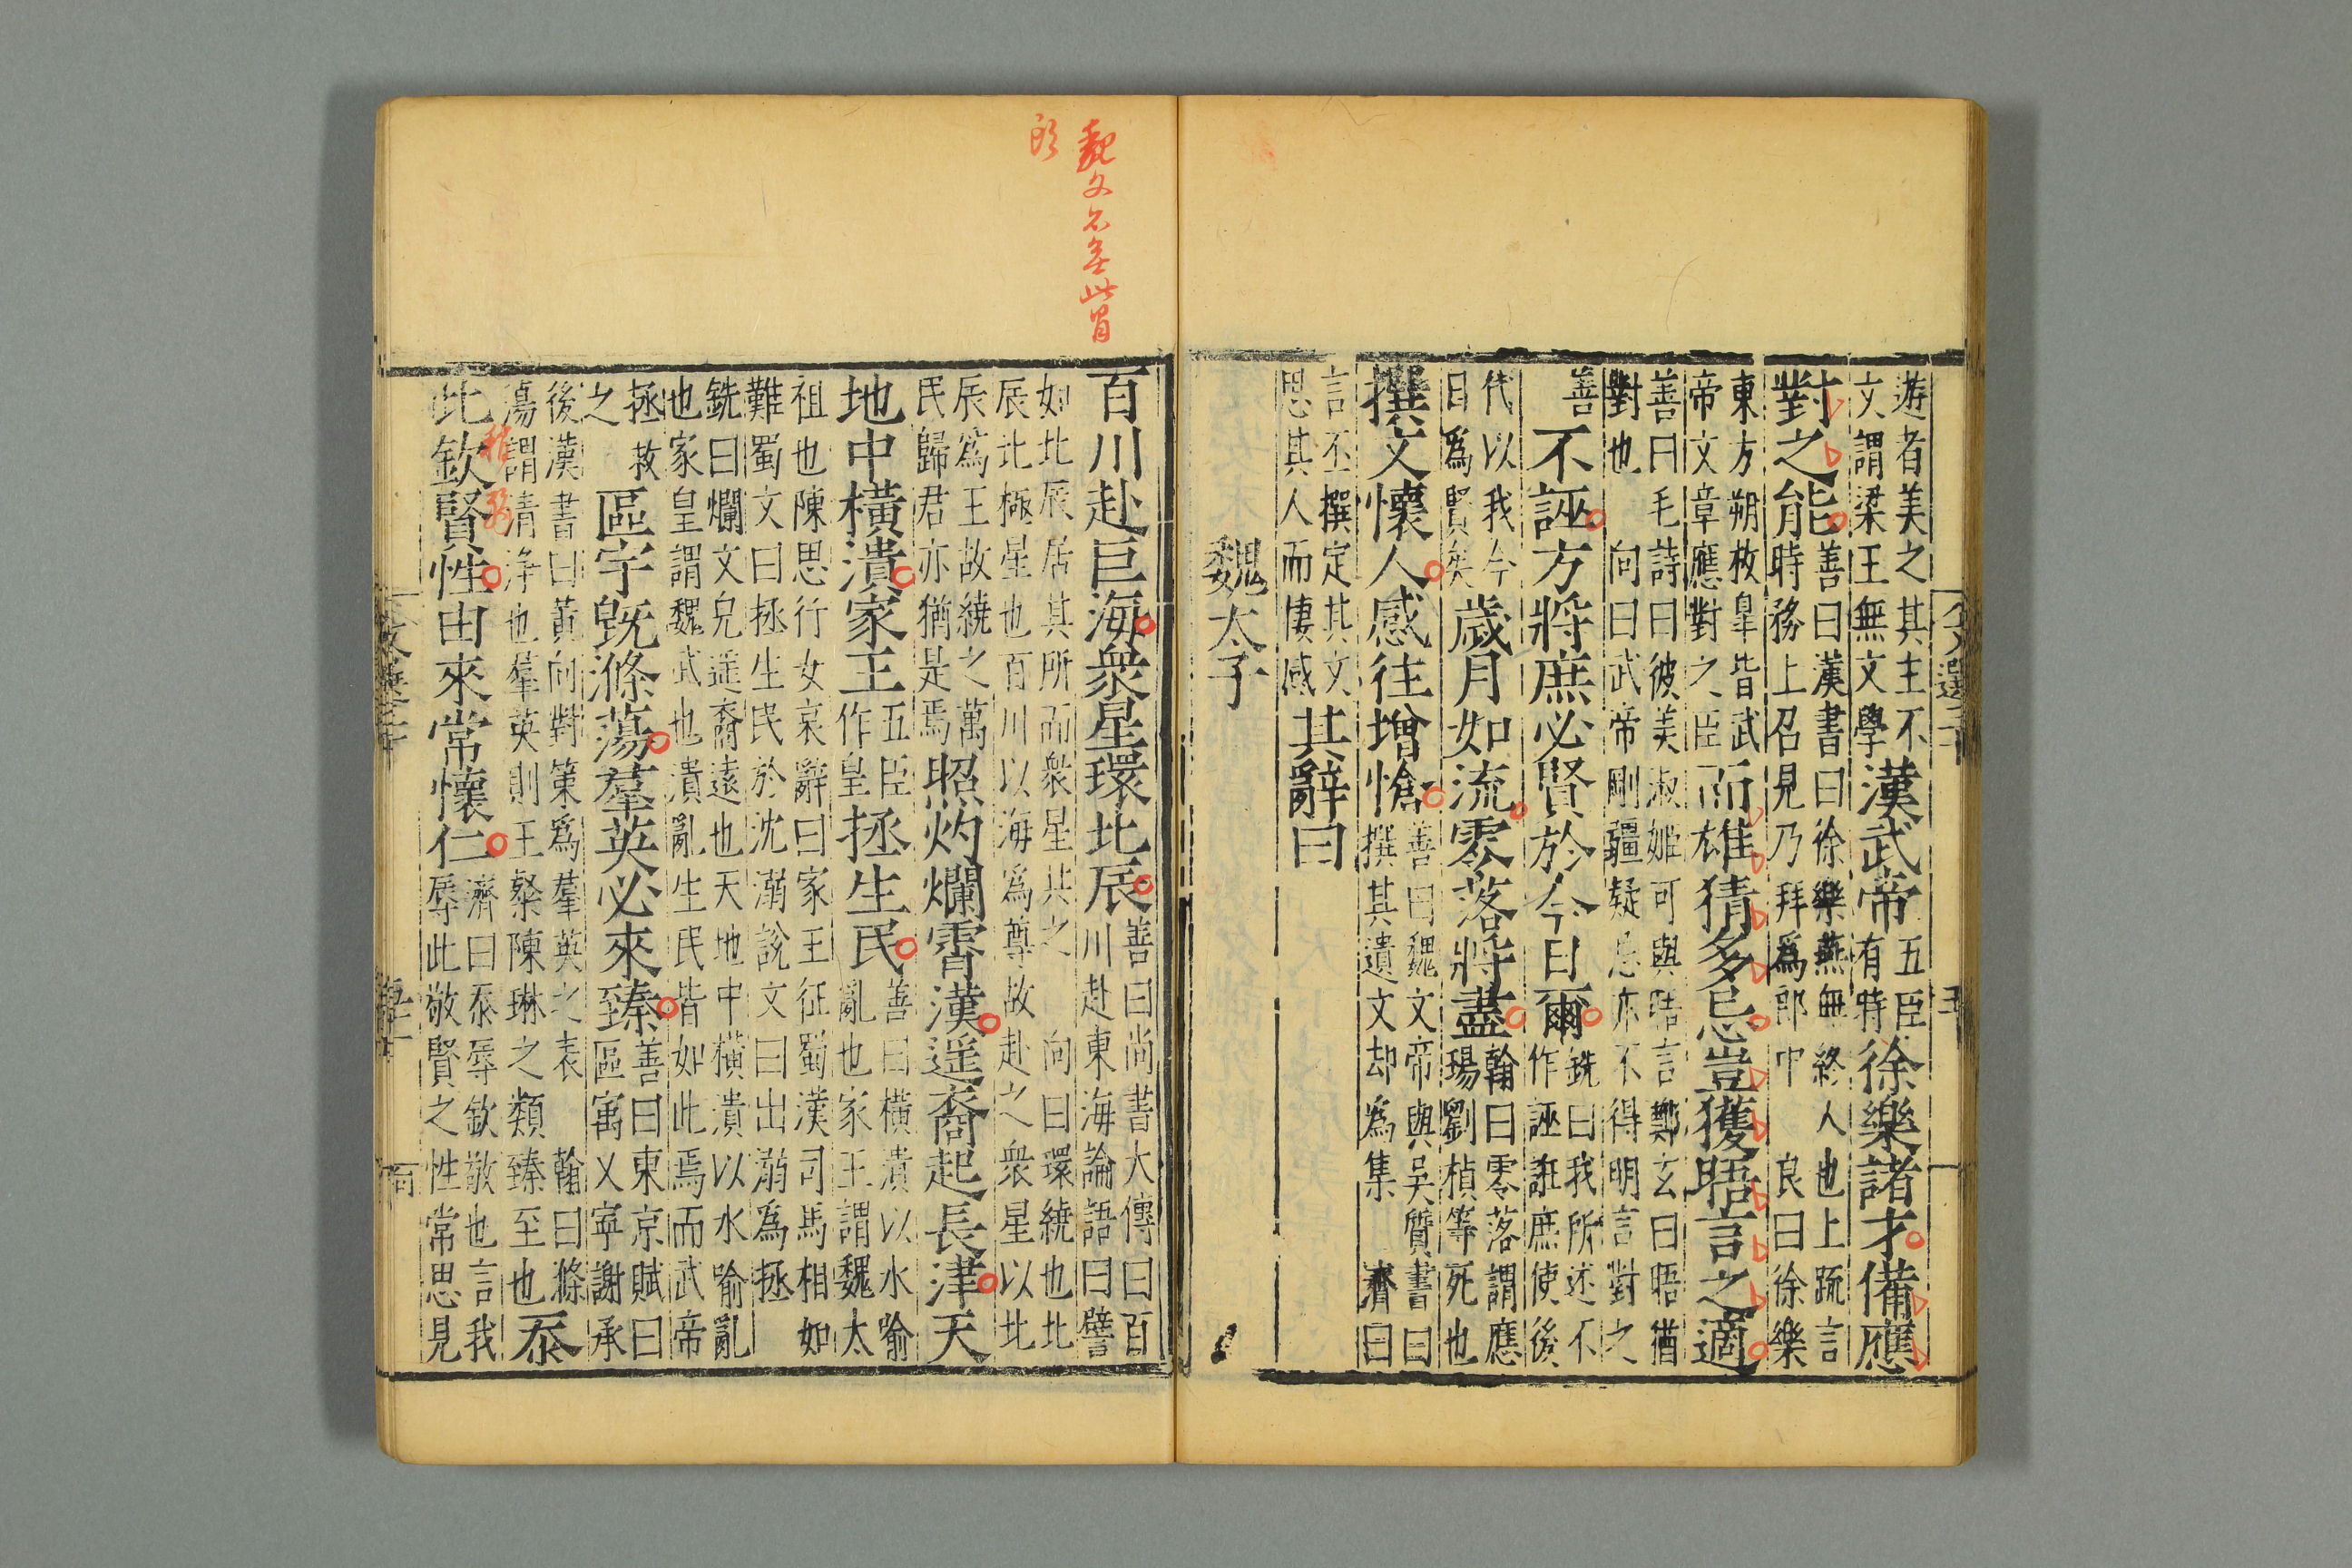 遊者美之其主不
文謂梁王無文學
漢武帝
五臣
有特
徐樂諸才備應
對之能
善曰漢書曰徐樂燕無終人也上疏言
時務上召見乃拜爲郎中 良曰徐樂
東方朔枚皐皆武
帝文章應對之臣
而雄猜多忌豈獲晤言之適
善曰毛詩曰彼美淑姬可與晤言鄭玄曰晤猶
對也 向曰武帝剛疆疑忌亦不得明言對之
善
不誣方將庶必賢於今日爾
銑曰我所述不
作誣誑庶使後
代以我今
日爲賢矣
歲月如流零落將盡
翰曰零落謂應
瑒劉楨等死也
撰文懷人感往增愴
善曰魏文帝與吳質書曰
撰其遺文却為集 濟曰
言丕撰定其文
思其人而悽感
其辭曰
魏太子
魏文不差此冒
百川赴巨海衆星環北辰
善曰尚書大傳曰百
川赴東海論語曰譬
如北辰居其所而衆星共之 向曰環繞也北
辰北極星也百川以海爲尊故赴之衆星以北
辰爲王故繞之萬
民歸君亦猶是焉
照灼爛霄漢遥裔起長津天
地中橫潰家王
五臣
作皇
拯生民
善曰橫潰以水喻
亂也家王謂魏太
祖也陳思行女哀辭曰家王征蜀漢司馬相如
難蜀文曰拯生民於沈溺說文曰出溺爲拯
銑曰爛文皃遥裔遠也天地中橫潰以水喻亂
也家皇謂魏武也潰亂生民皆如此焉而武帝
拯救
之
區宇旣滌蕩羣英必來臻
善曰東京賦曰
區寓乂寧謝承
後漢書曰黃向對策爲羣英之表 翰曰滌
蕩謂清淨也羣英則王粲陳琳之類臻至也
忝
此欽賢性由來常懷仁
濟曰忝辱欽敬也言我
辱此敬賢之性常思見